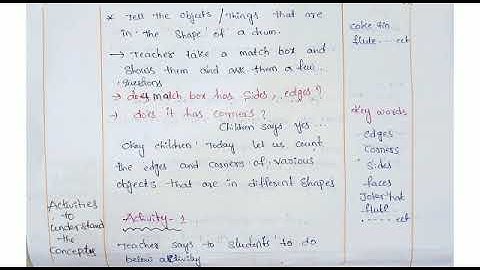 * Tell the objects / Things that are
in the shape of a drum.
→ Teacher take a match box and
shows them and ask them a few
questions
→ does match box has sides, edges?
→ does it has corners?
Children says yes...
Okay children! Today let us count
the edges and corners of various
objects that are in different shapes
Activity-1
Teacher says to students to do
below activity
Activities
to
understand
the
Concepts
coke tin
flute.....ect
Key words
edges
corners
sides
faces
Joker hat
flute
.....ect